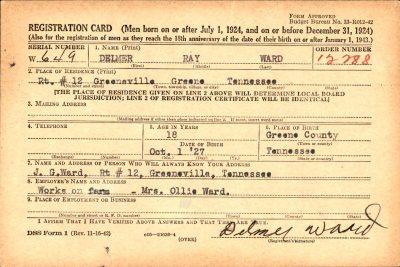 FORM APPROVED
BUDGET BUREAU No. 33-R012-42
REGISTRATION CARD (Men born on or after July 1, 1924, and on or before December 31, 1924)
(Also for the registration of men as they reach the 18th anniversary of the date of their birth on or after January 1, 1943.)
SERIAL NUMBER 1. NAME (Print) ORDER NUMBER
W 649 DELMER RAY WARD 12288
(First) (Middle) (Last)
2. PLACE OF RESIDENCE
Rt. # 12 Greeneville, Greene Tennessee
(Number and street) (Town, township, village, or city) (County) (State)
[THE PLACE OF RESIDENCE GIVEN ON LINE 2 ABOVE WILL DETERMINE LOCAL BOARD
JURISDICTION; LINE 2 OF REGISTRATION CERTIFICATE WILL BE IDENTICAL]
3. MAILING ADDRESS
4. TELEPHONE 5. AGE IN YEARS 6. PLACE OF BIRTH
18 Greene County
DATE OF BIRTH
Oct. 1 '27 Tennessee
7. NAME AND ADDRESS OF PERSON WHO WILL ALWAYS KNOW YOUR ADDRESS
J. G. Ward, Rt # 12, Greeneville, Tennessee
8. EMPLOYER'S NAME AND ADDRESS
Works on farm - Mrs. Ollie Ward.
9. PLACE OF EMPLOYMENT OR BUSINESS
I AFFIRM THAT I HAVE VERIFIED ABOVE ANSWERS AND THAT THEY ARE TRUE.
DSS Form 1 (Rev. 11-16-42) (OVER) Delmer Ward
(Registrant's signature)